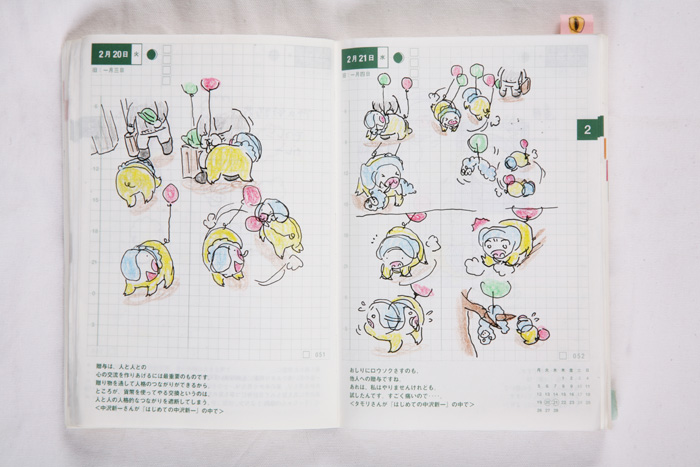 2月20日
旧・一月三日
051
贈与は、人と人との
心の交流を作りあげるには最重要のものです。
贈り物を通して人格のつながりができるから。
ところが、貨幣を使ってやる交換というのは、
人と人の人格的なつながりを遮断してしまう。
<中沢新一さんが『はじめての中沢新一』の中で>
2月21日
旧・一月四日
2
052
おしりにロウソクさすのも、
他人への贈与ですね。
あれは、私はやりませんけれども。
試したんです、すごく熱いので……。
<タモリさんが『はじめての中沢新一』の中で>